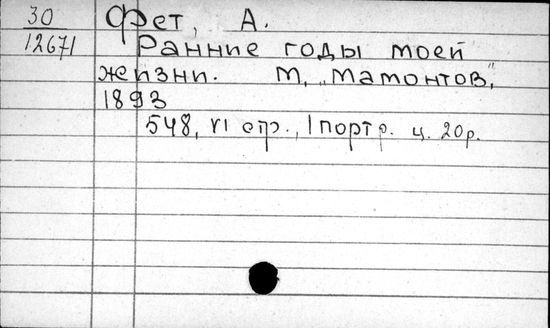 30 Фет, А.
12671 Ранние годы моей
жизни. М, "Мамонтов",
1893
548, VI стр., 1 портр. ц. 20р.